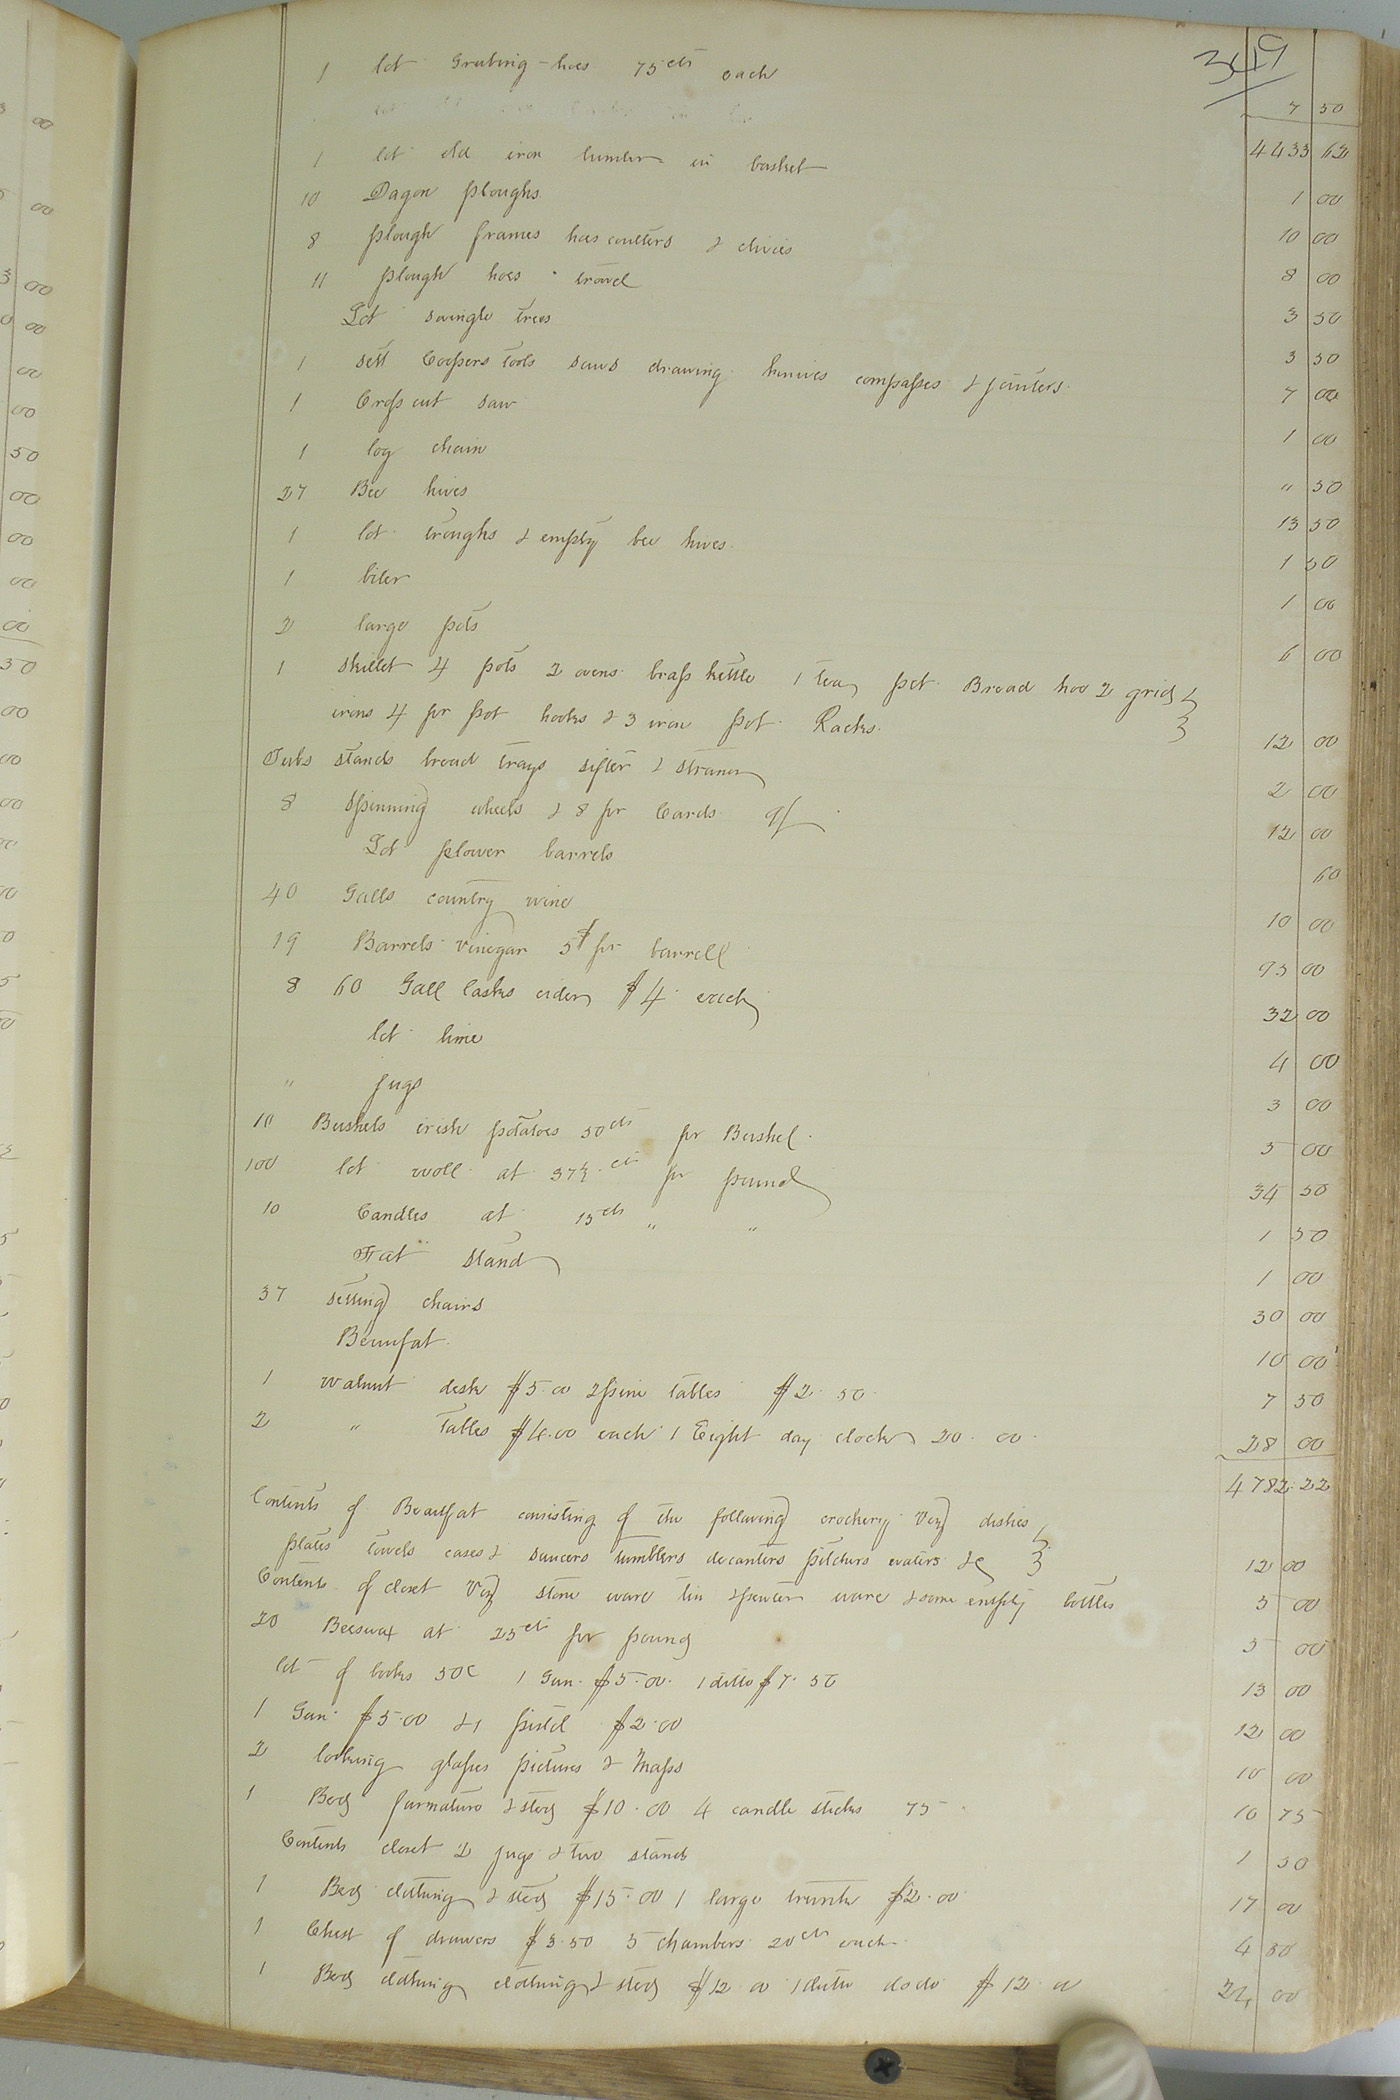 349
1 lot Grubing-hoes 75 cts each 7 50
4433 62
1 lot old iron lumber in basket 1 00
10 Dagon ploughs 10 00
8 plough frames hoes coulters & clivies 8 00
11 plough hoes 3 50
Lot swingle trees 3 50
1 sett Coopers tools saws drawing knives compasses & jointers 7 00
1 Cross cut saw 1 00
1 log chain " 50
27 Bee hives 13 50
1 lot troughs & empty bee hives 1 50
1 1 00
2 large pots 6 00
1 skillet 4 pots 2 ovens brass kettle 1 tea pot Bread hoe 2 grid
irons 4 pr pot hooks & 3 iron pot Racks 12 00
Tubs stands bread trays sifter & straner 2 00
8 Spinning wheels & 8 pr Cards 12 00
Lot flower barrels 60
40 Galls country wine 10 00
19 Barrels vinegar 5$ pr barrell 95 00
8 60 Gall casks cider $4 each 32 00
lot lime 4 00
" jugs 3 00
10 Bushels irish potatoes 50 cts pr Bushel 5 00
100 woll at 37½ cts pr pound 34 50
10 Candles at 15 cts " " 1 50
Fat stand 1 00
37 setting chairs 30 00
Beaufat 10 00
1 walnut desk $5.00 2 pine tables $2.50 7 50
2 " Tables $4.00 each 1 Eight day clock 20.00 28 00
4782.22
Contents of Beaufat consisting of the following crockery Viz dishes
plates towels cases & saucers tumblers decanters pitchers waters &c 12 00
Contents of closet Viz stone ware tin & pewter ware & some empty bottles 5 00
20 Beeswax at 25 cts pr pound 5 00
lot of books 50c 1 Gun $5.00 1 ditto $7.50 13 00
1 Gun $5.00 & 1 pistol $2.00 12 00
2 looking glasses pictures & Maps 10 00
1 Bed furnature & sted $10.00 4 candle sticks 75 10 75
Contents closet 2 jugs & two stands 1 50
1 Bed clothing & sted $15.00 1 large trunk $2.00 17 00
1 Chest of drawers $3.50 5 chambers 20 cts each 4 50
1 Bed clothing clothing & sted $12 00 1 ditto do do $12 00 24 00